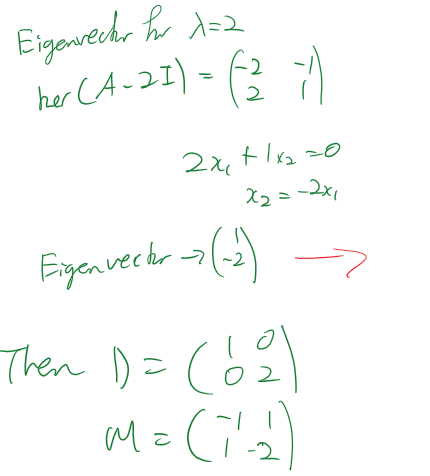 Eigenvector for λ=2
ker(A-2I) = (-2 -1
2 1)
2x₁ + 1x₂ = 0
x₂ = -2x₁
Eigenvector → (1
-2) →
Then D = (1 0
0 2)
M = (-1 1
1 -2)